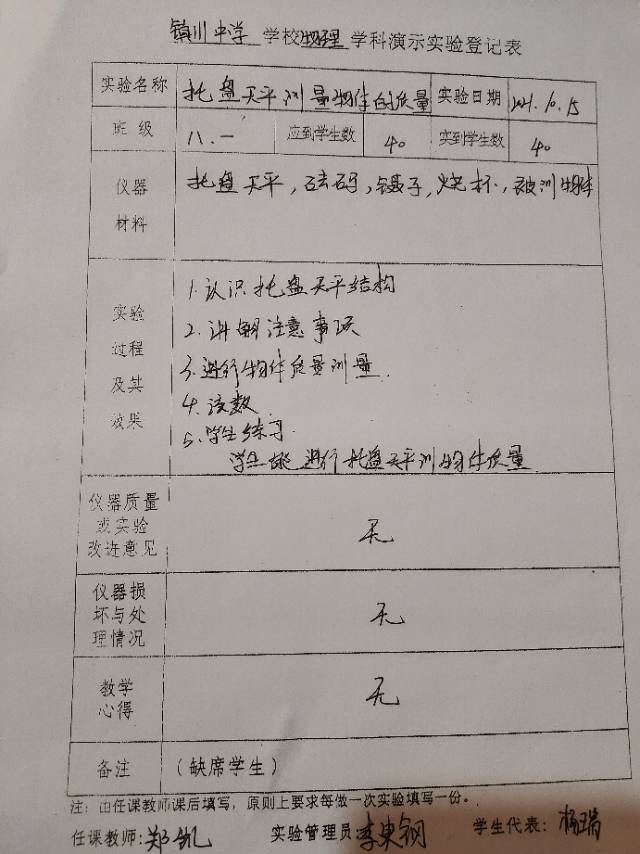 镇川中学 学校 物理 学科演示实验登记表
实验名称 托盘天平测量物体的质量 实验日期 2021.10.15
班 级 八.一 应到学生数 40 实到学生数 40
仪器 托盘天平,砝码,镊子,烧杯,被测物体
材料
实验 1.认识托盘天平结构
过程 2.讲解注意事项
及其 3.进行物体质量测量.
效果 4.读数.
5.学生练习
学生能进行托盘天平测物体质量.
仪器质量
或实验
改进意见
无
仪器损
坏与处
理情况
无
教学
心得
无
备注 (缺席学生)
注:由任课教师课后填写,原则上要求每做一次实验填写一份。
任课教师:郑凯 实验管理员:李东钢 学生代表:杨瑞